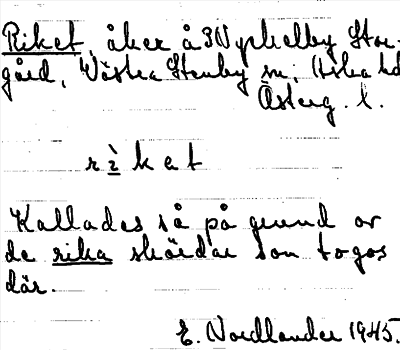 Riket, åker å 3 Nyckelby Stor-
gård, Västra Stenby sn. Aska hd
Österg. l.
rìket
Kallades så på grund av
de rika skördar som togos
där.
E. Nordlander 1945.